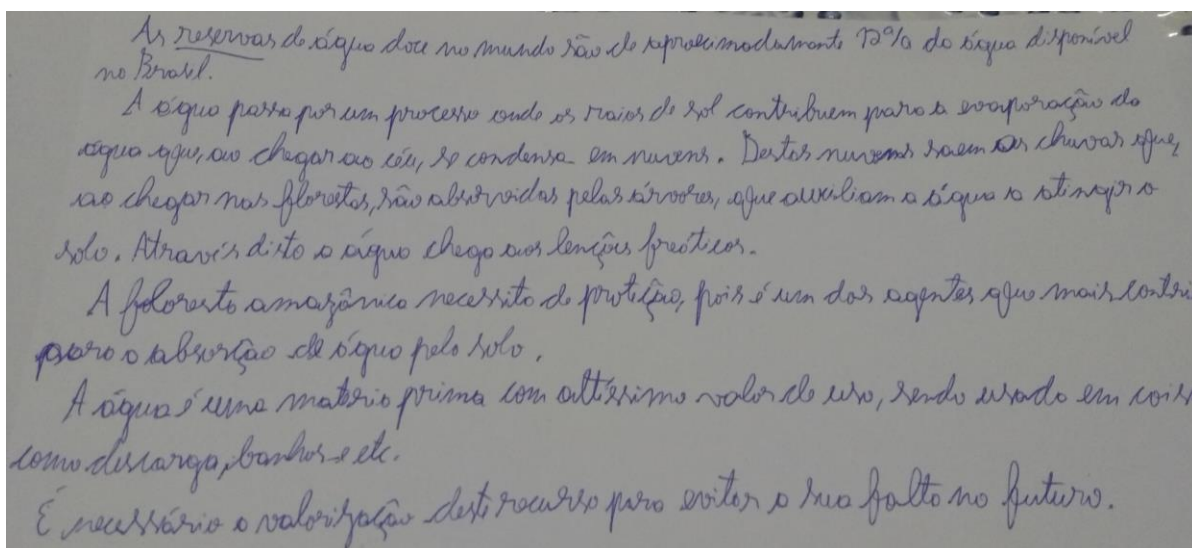 As reservas de água doce no mundo são de aproximadamente 12% da água disponível
no Brasil.
A água passa por um processo onde os raios de sol contribuem para a evaporação da
água que, ao chegar ao céu, se condensa em nuvens. Destas nuvens saem as chuvas que,
ao chegar nas florestas, são absorvidas pelas árvores, que auxiliam a água a atingir o
solo. Através disto a água chega aos lençóis freáticos.
A floresta amazônica necessita de proteção, pois é um dos agentes que mais contri
para a absorção de água pelo solo.
A água é uma matéria prima com altíssimo valor de uso, sendo usada em cois
como descarga, banhos e etc.
É necessário a valorização deste recurso para evitar a sua falta no futuro.